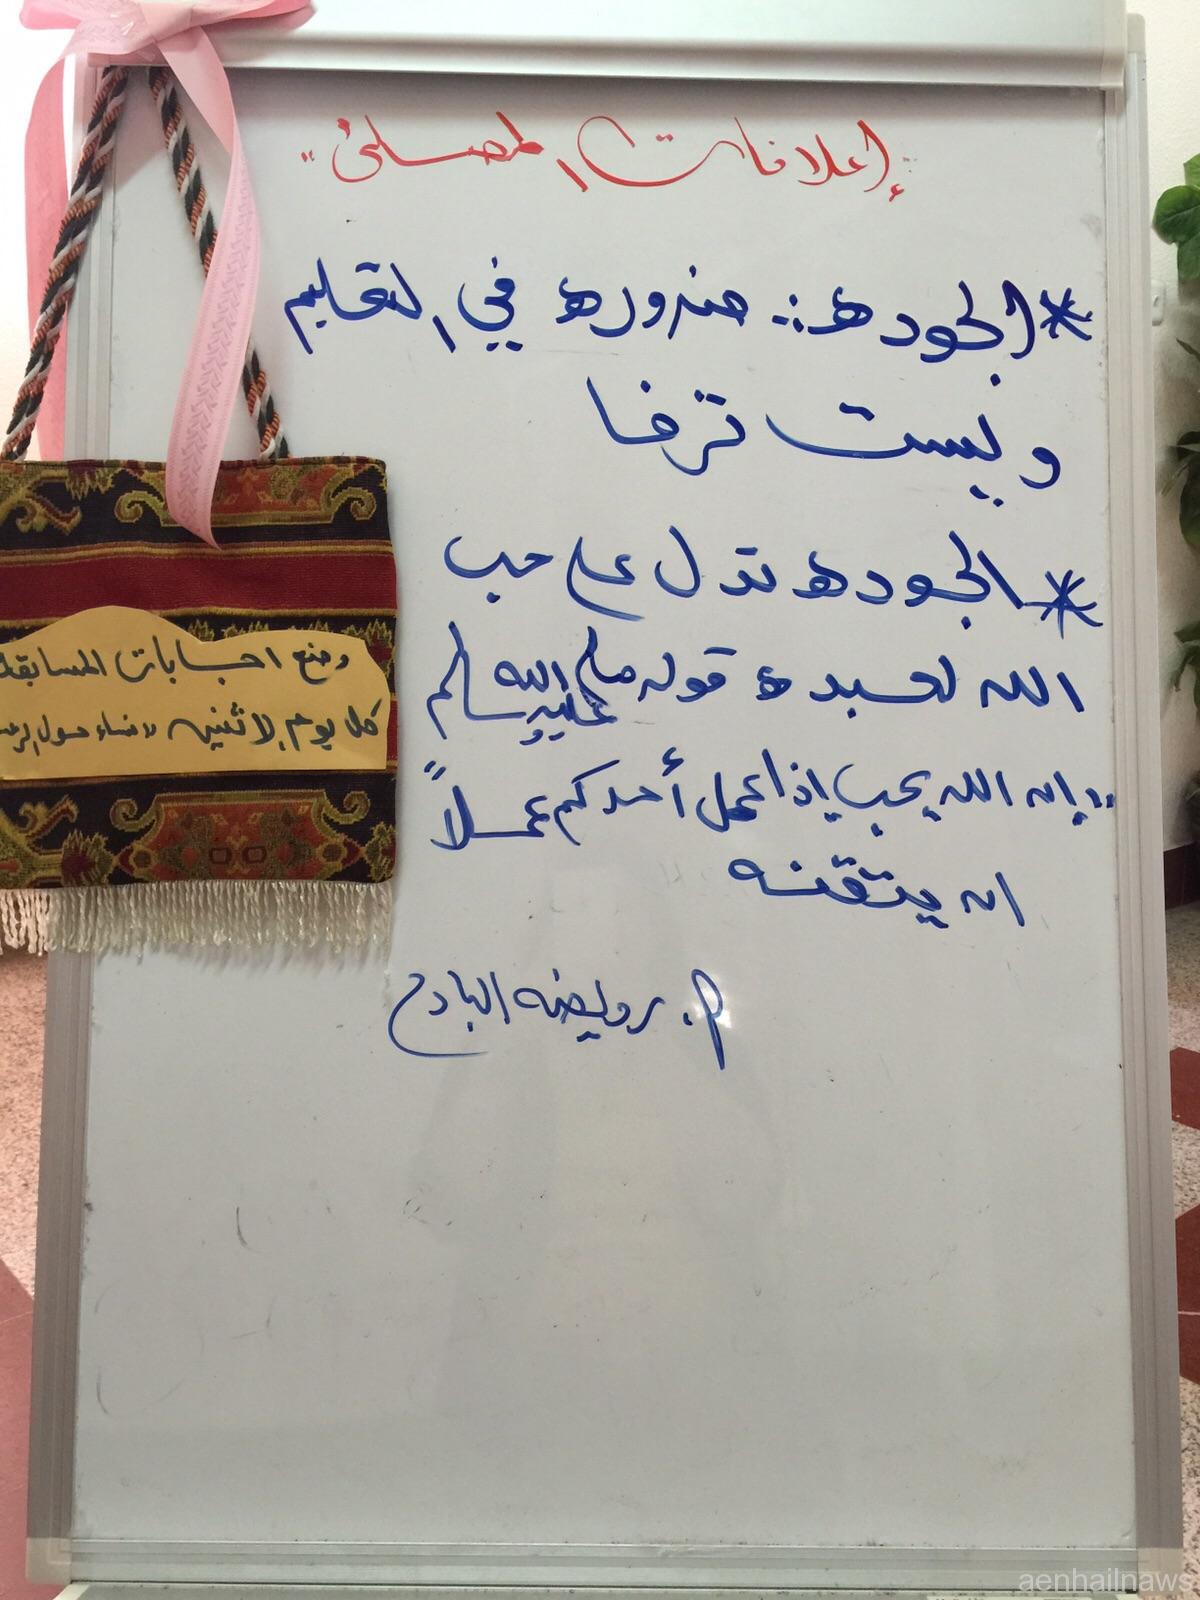 إعلانات المصلى "
* الجوده :. ضروره في التعليم
وليست ترفا
* الجوده تدل على حب
الله لعبده قوله صلى الله عليه وسلم
" إن الله يحب إذا عمل أحدكم عملاً "
ان يتقنه
م. رويضه البادح
وضع اجابات المسابقه
كل يوم الاثنين
aenhailnaws